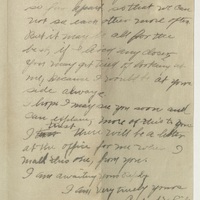 is far apart so that we can
not see each other more often
But it may be all for the
best, if I along any longer
you may get tired of looking at
me, because I would be at your
side always.
I hope I may see you soon and
can explain more of this to you
I trust there will be a letter
at the office for me when I
mail this one, from you.
I am awaiting
I am, very truly yours